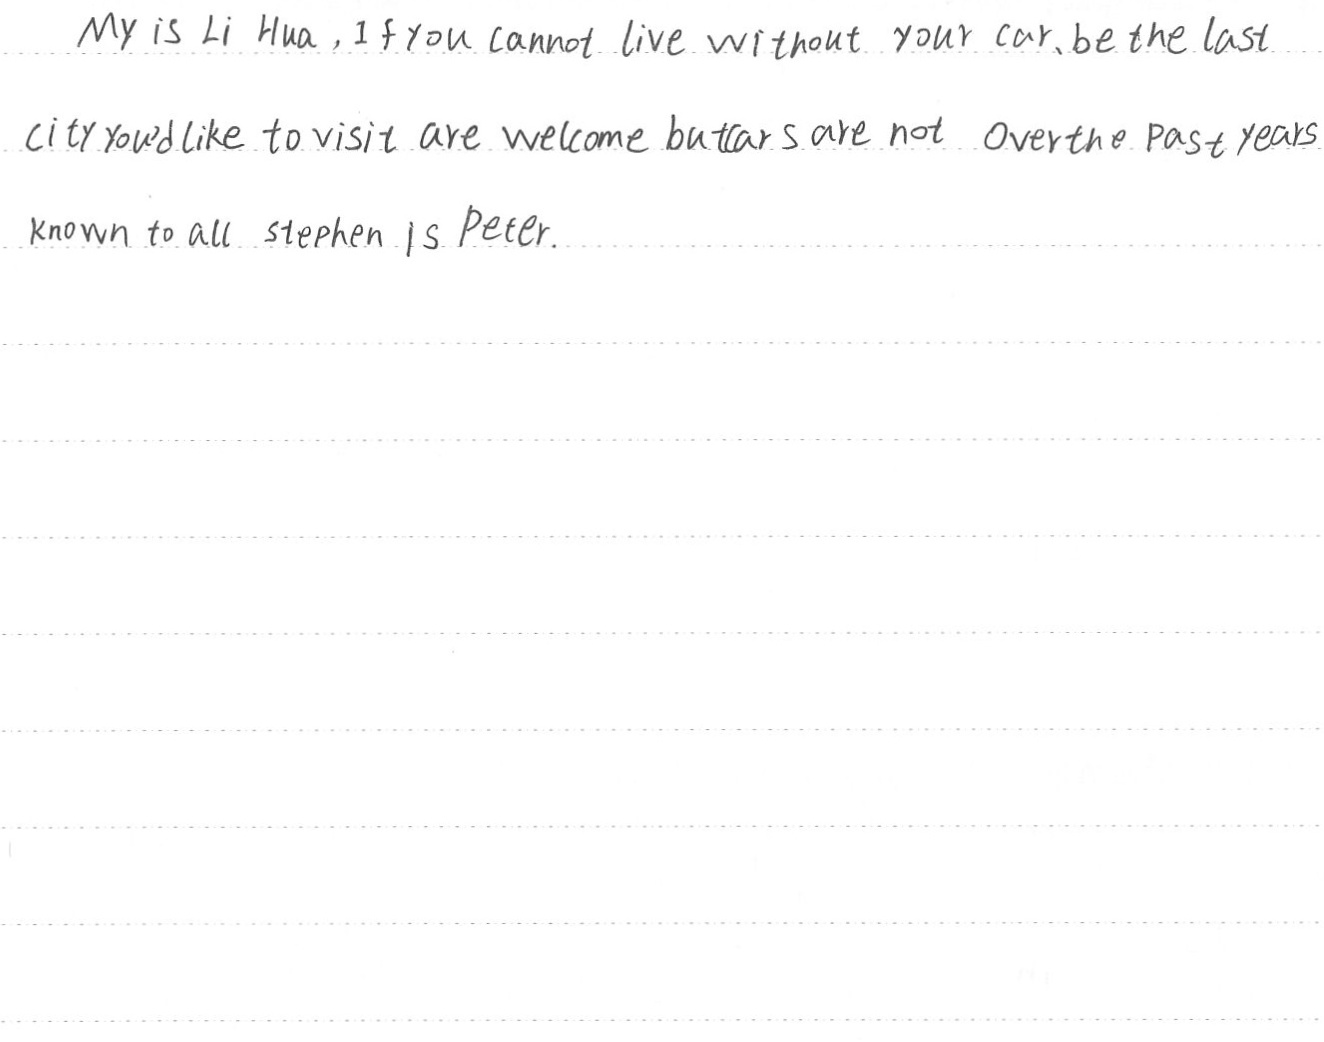 My is Li Hua, If you cannot live without your car, be the last
city you'd like to visit are welcome but cars are not Over the past years
known to all stephen is Peter.